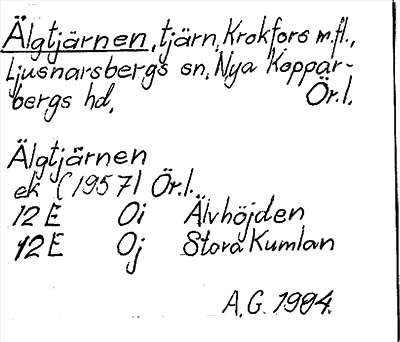 Älgtjärnen, tjärn, Krokfors m.fl.,
Ljusnarsbergs sn, Nya Koppar-
bergs hd, Ör.l.
Älgtjärnen
ek (1957) Ör.l.
12 E 0i Älvhöjden
12 E 0j Stora Kumlan
A.G. 1994.